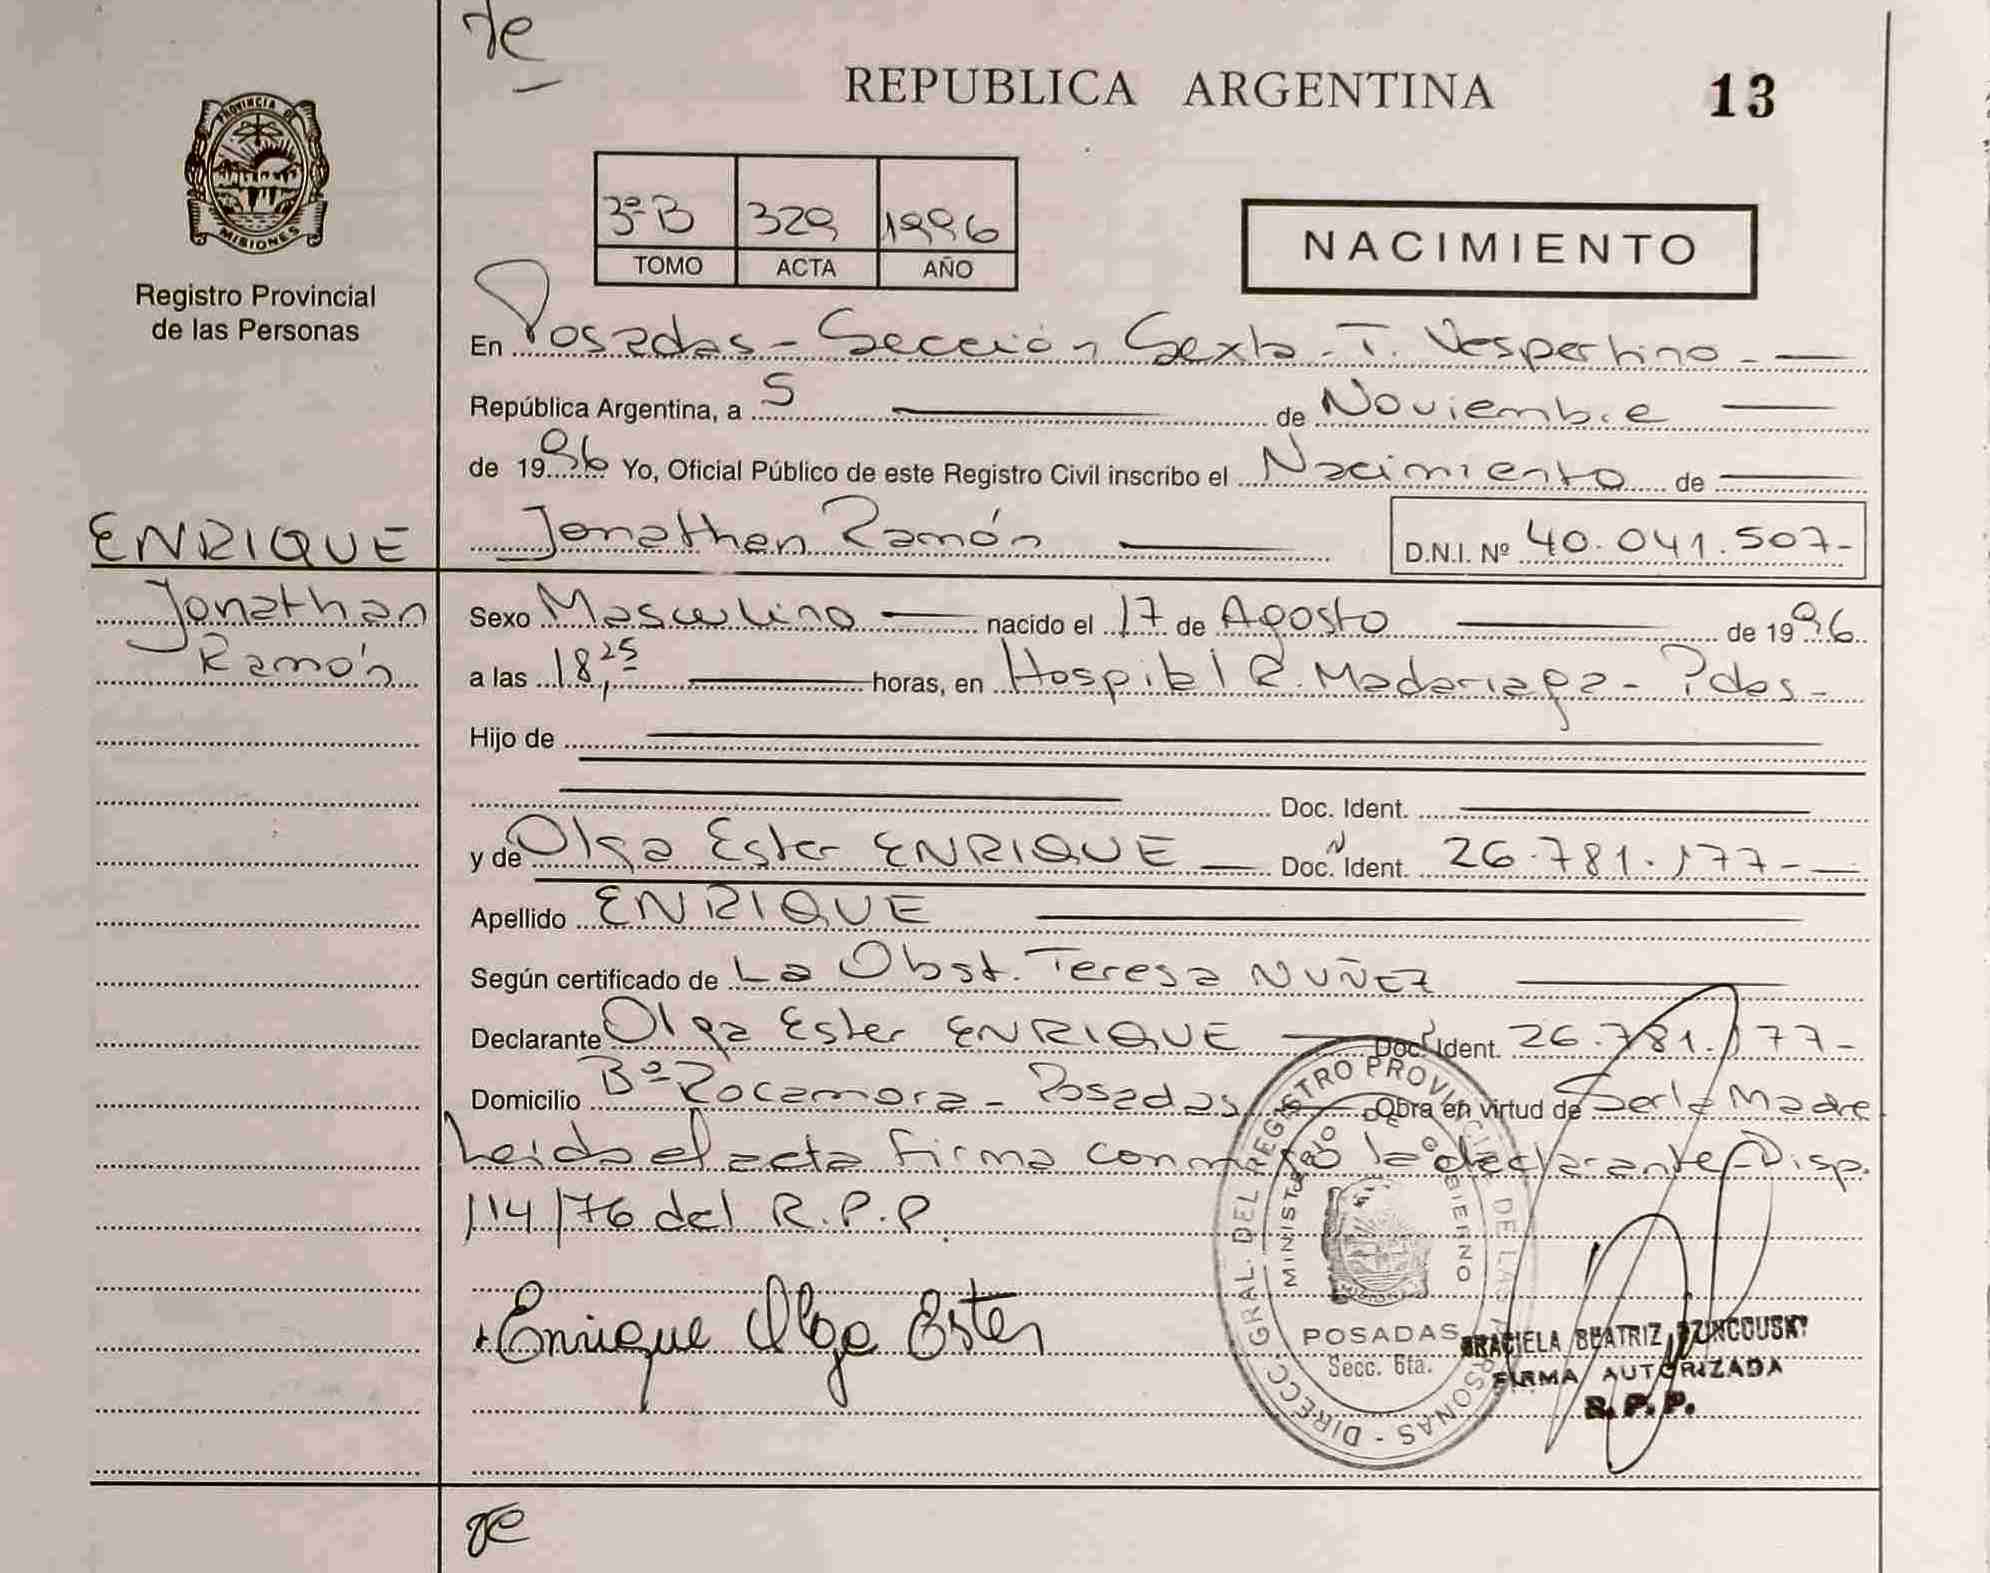 REPUBLICA ARGENTINA
13
PROVINCIA DE
MISIONES
Registro Provincial
de las Personas
3º B 329 1996
TOMO ACTA AÑO
NACIMIENTO
En Posadas - Sección Sexta - T. Vespertino -
República Argentina, a 5 de Noviembre
de 1996 Yo, Oficial Público de este Registro Civil inscribo el Nacimiento de
ENRIQUE
Jonathan Ramón
Jonathan Ramón D.N.I. Nº 40.041.507-
Sexo Masculino nacido el 17 de Agosto de 1996
a las 18,25 horas, en Hospital R. Madariaga - Pdas -
Hijo de
Doc. Ident.
y de Olga Ester ENRIQUE Doc. Ident. 26.781.177-
Apellido ENRIQUE
Según certificado de La Obst. Teresa NUÑEZ
Declarante Olga Ester ENRIQUE Doc. Ident. 26.781.177-
Domicilio Bº Rocamora - Posadas Obra en virtud de Ser la Madre
Leida el acta firma conmigo la declarante - Disp.
114/76 del R.P.P
Enrique Olga Ester
DIRECC. GRAL. DEL REGISTRO PROVINCIAL DE LAS PERSONAS -
MINISTERIO DE GOBIERNO
POSADAS
Secc. 6ta.
GRACIELA BEATRIZ
FIRMA AUTORIZADA
R. P. P.